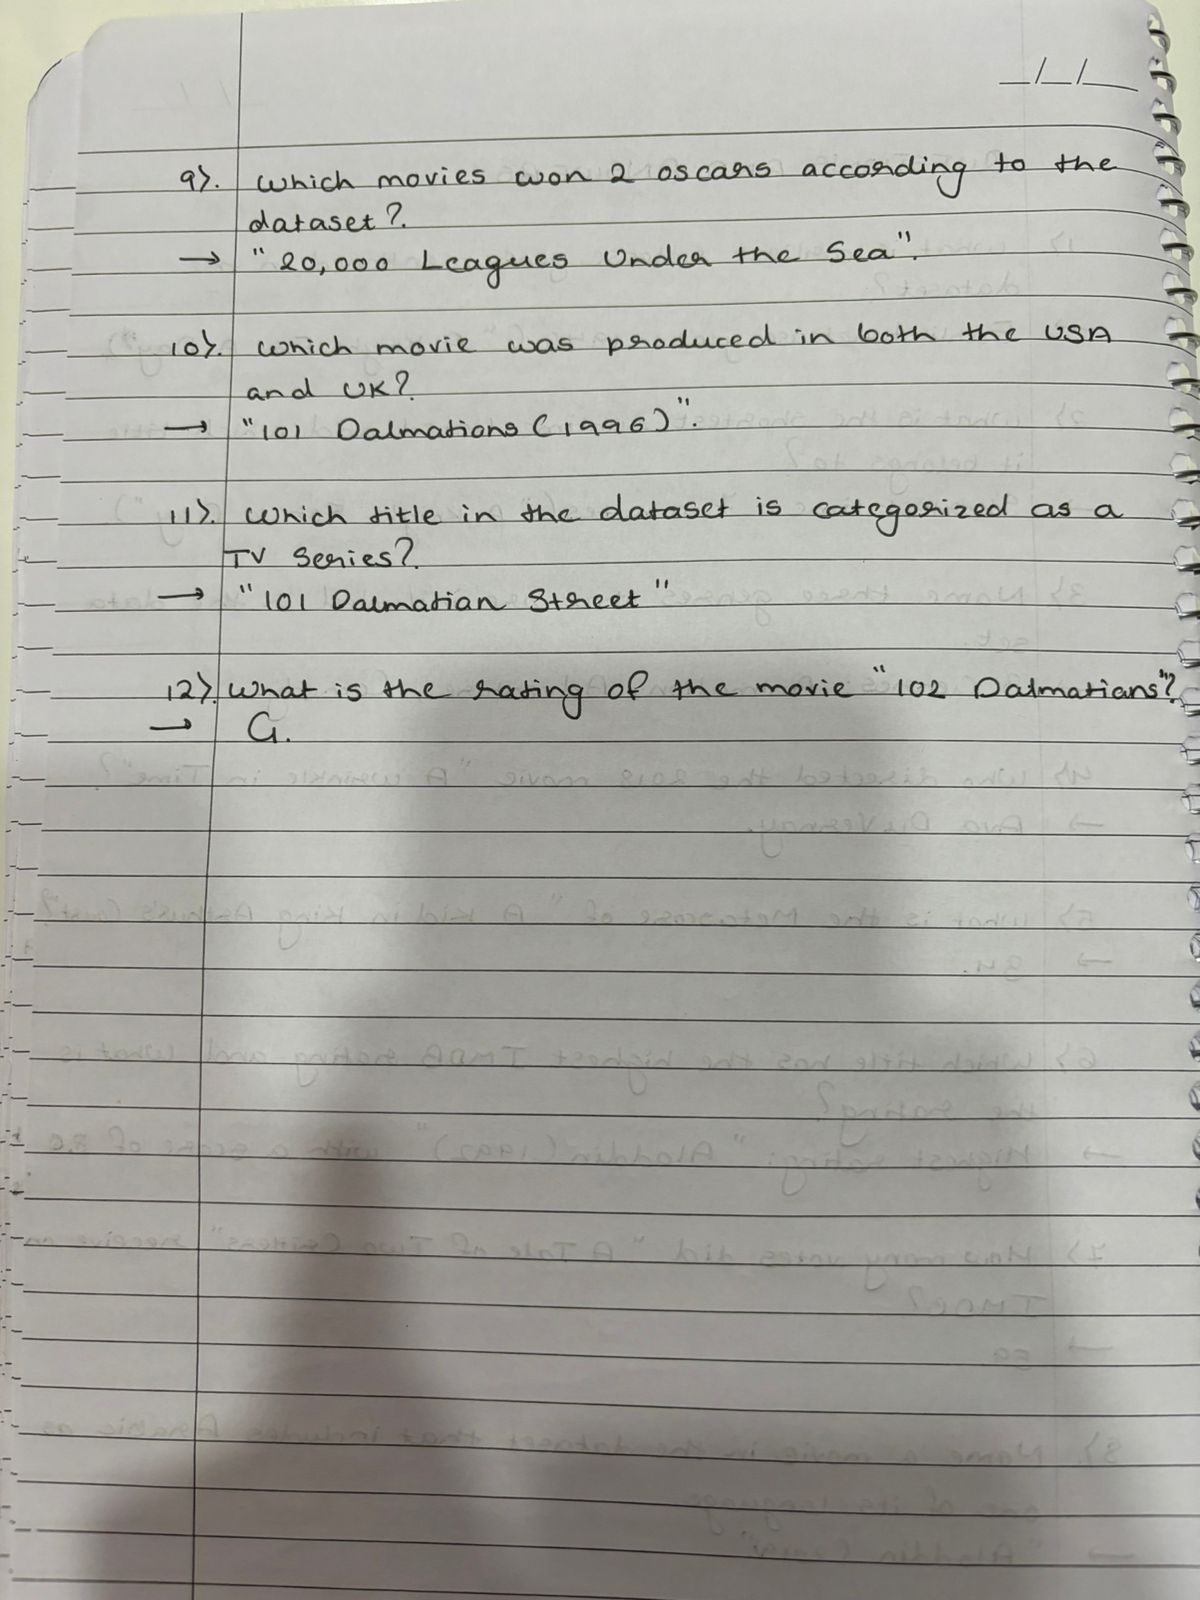 _/_/_
9). Which movies won 2 oscars according to the
dataset?
→ "20,000 Leagues Under the Sea".
10). Which movie was produced in both the USA
and UK?
→ "101 Dalmations (1996)".
11). Which title in the dataset is categorized as a
TV Series?
→ "101 Dalmatian Street"
12). What is the rating of the movie "102 Dalmatians"?
→ G.